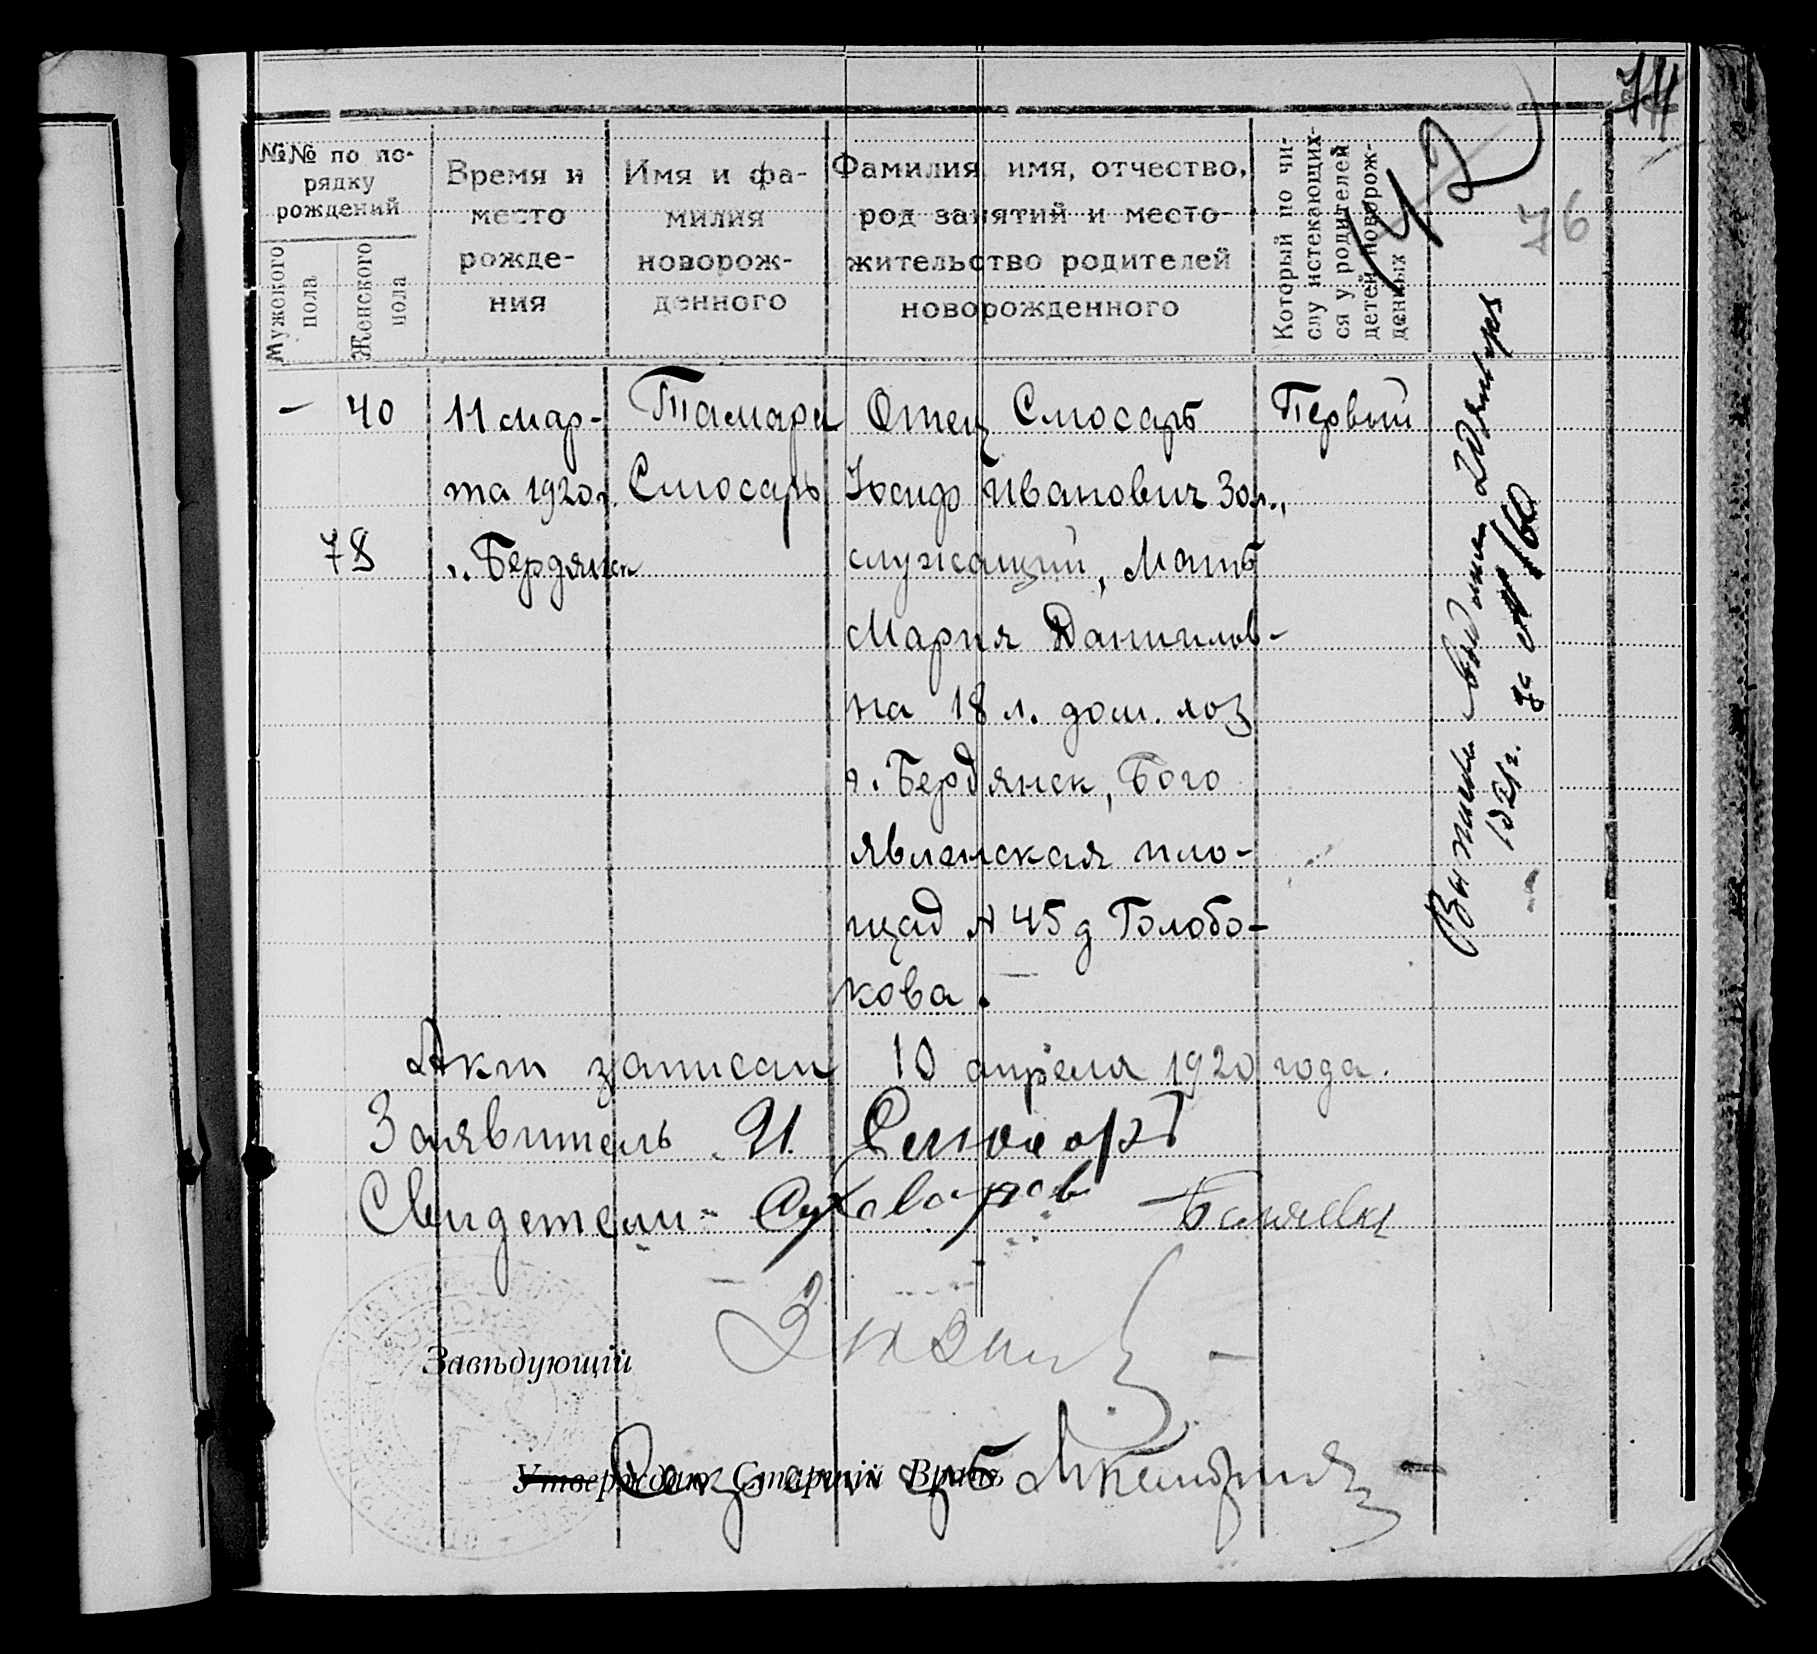 74
42
76
№№ по по-
рядку
рождений
Мужского
пола
Женского
пола
Время и
место
рожде-
ния
Имя и фа-
милия
новорож-
денного
Фамилия, имя, отчество,
род занятий и место-
жительство родителей
новорожденного
Который по чи-
слу истекающих-
ся у родителей
детей новорож-
денных
— 40
78
11 мар-
та 1920г.
г. Бердянск
Тамара
Слюсарь
Отец Слюсарь
Иосиф Иванович 30л.,
служащий, Мать
Мария Даниилов-
на 18 л. дом. хоз
г. Бердянск, Бого
явленская пло-
щад № 45 д Голобо-
кова.
Первый
Выпись выдана
за № 160
Акт записан 10 апреля 1920 года.
Заявитель И. Слюсарь
Свидетели -
Завѣдующій
Утверждаю Старшій Врачъ
Секретарь